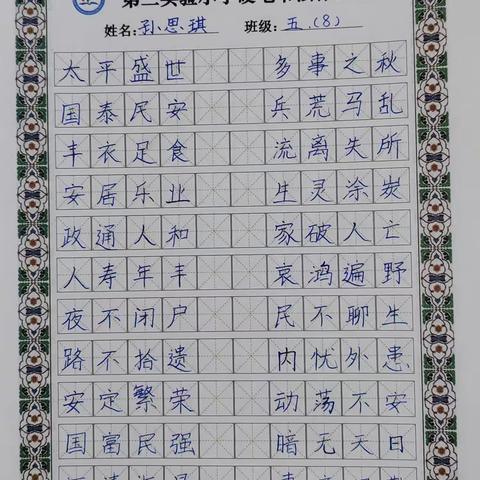 姓名:孙思琪 班级:五.(8)
太平盛世 多事之秋
国泰民安 兵荒马乱
丰衣足食 流离失所
安居乐业 生灵涂炭
政通人和 家破人亡
人寿年丰 哀鸿遍野
夜不闭户 民不聊生
路不拾遗 内忧外患
安定繁荣 动荡不安
国富民强 暗无天日